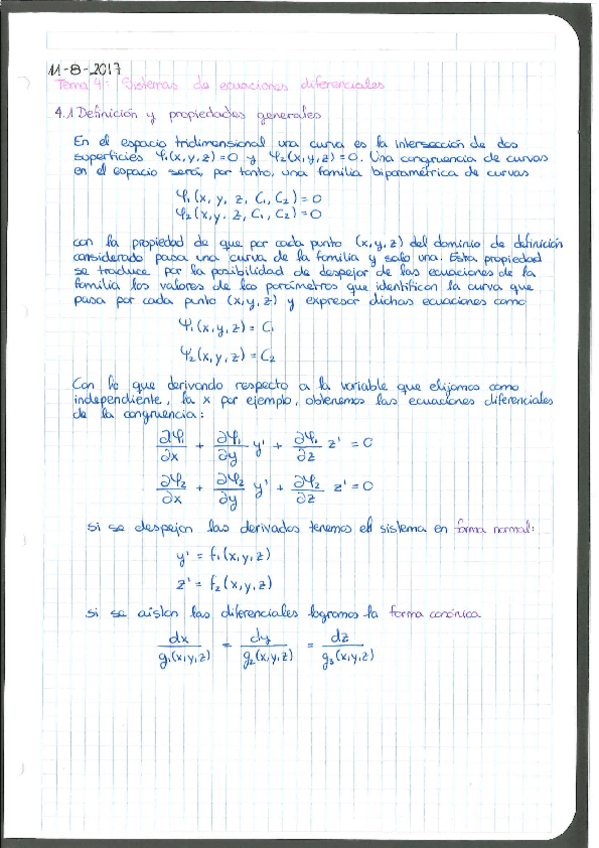 11-8-2017
Tema 4: Sistemas de ecuaciones diferenciales
4.1 Definición y propiedades generales
En el espacio tridimensional una curva es la intersección de dos
superficies φ₁(x, y, z) = 0 y φ₂(x, y, z) = 0. Una congruencia de curvas
en el espacio será, por tanto, una familia biparamétrica de curvas
φ₁(x, y, z, C₁, C₂) = 0
φ₂(x, y, z, C₁, C₂) = 0
con la propiedad de que por cada punto (x, y, z) del dominio de definición
considerado pasa una curva de la familia y solo una. Esta propiedad
se traduce por la posibilidad de despejar de las ecuaciones de la
familia los valores de los parámetros que identifican la curva que
pasa por cada punto (x, y, z) y expresar dichas ecuaciones como
Ψ₁(x, y, z) = C₁
Ψ₂(x, y, z) = C₂
Con lo que derivando respecto a la variable que elijamos como
independiente, la x por ejemplo, obtenemos las ecuaciones diferenciales
de la congruencia:
∂Ψ₁/∂x + ∂Ψ₁/∂y y' + ∂Ψ₁/∂z z' = 0
∂Ψ₂/∂x + ∂Ψ₂/∂y y' + ∂Ψ₂/∂z z' = 0
si se despejan las derivadas tenemos el sistema en forma normal:
y' = f₁(x, y, z)
z' = f₂(x, y, z)
si se aislan las diferenciales logramos la forma canónica
dx/g₁(x, y, z) = dy/g₂(x, y, z) = dz/g₃(x, y, z)